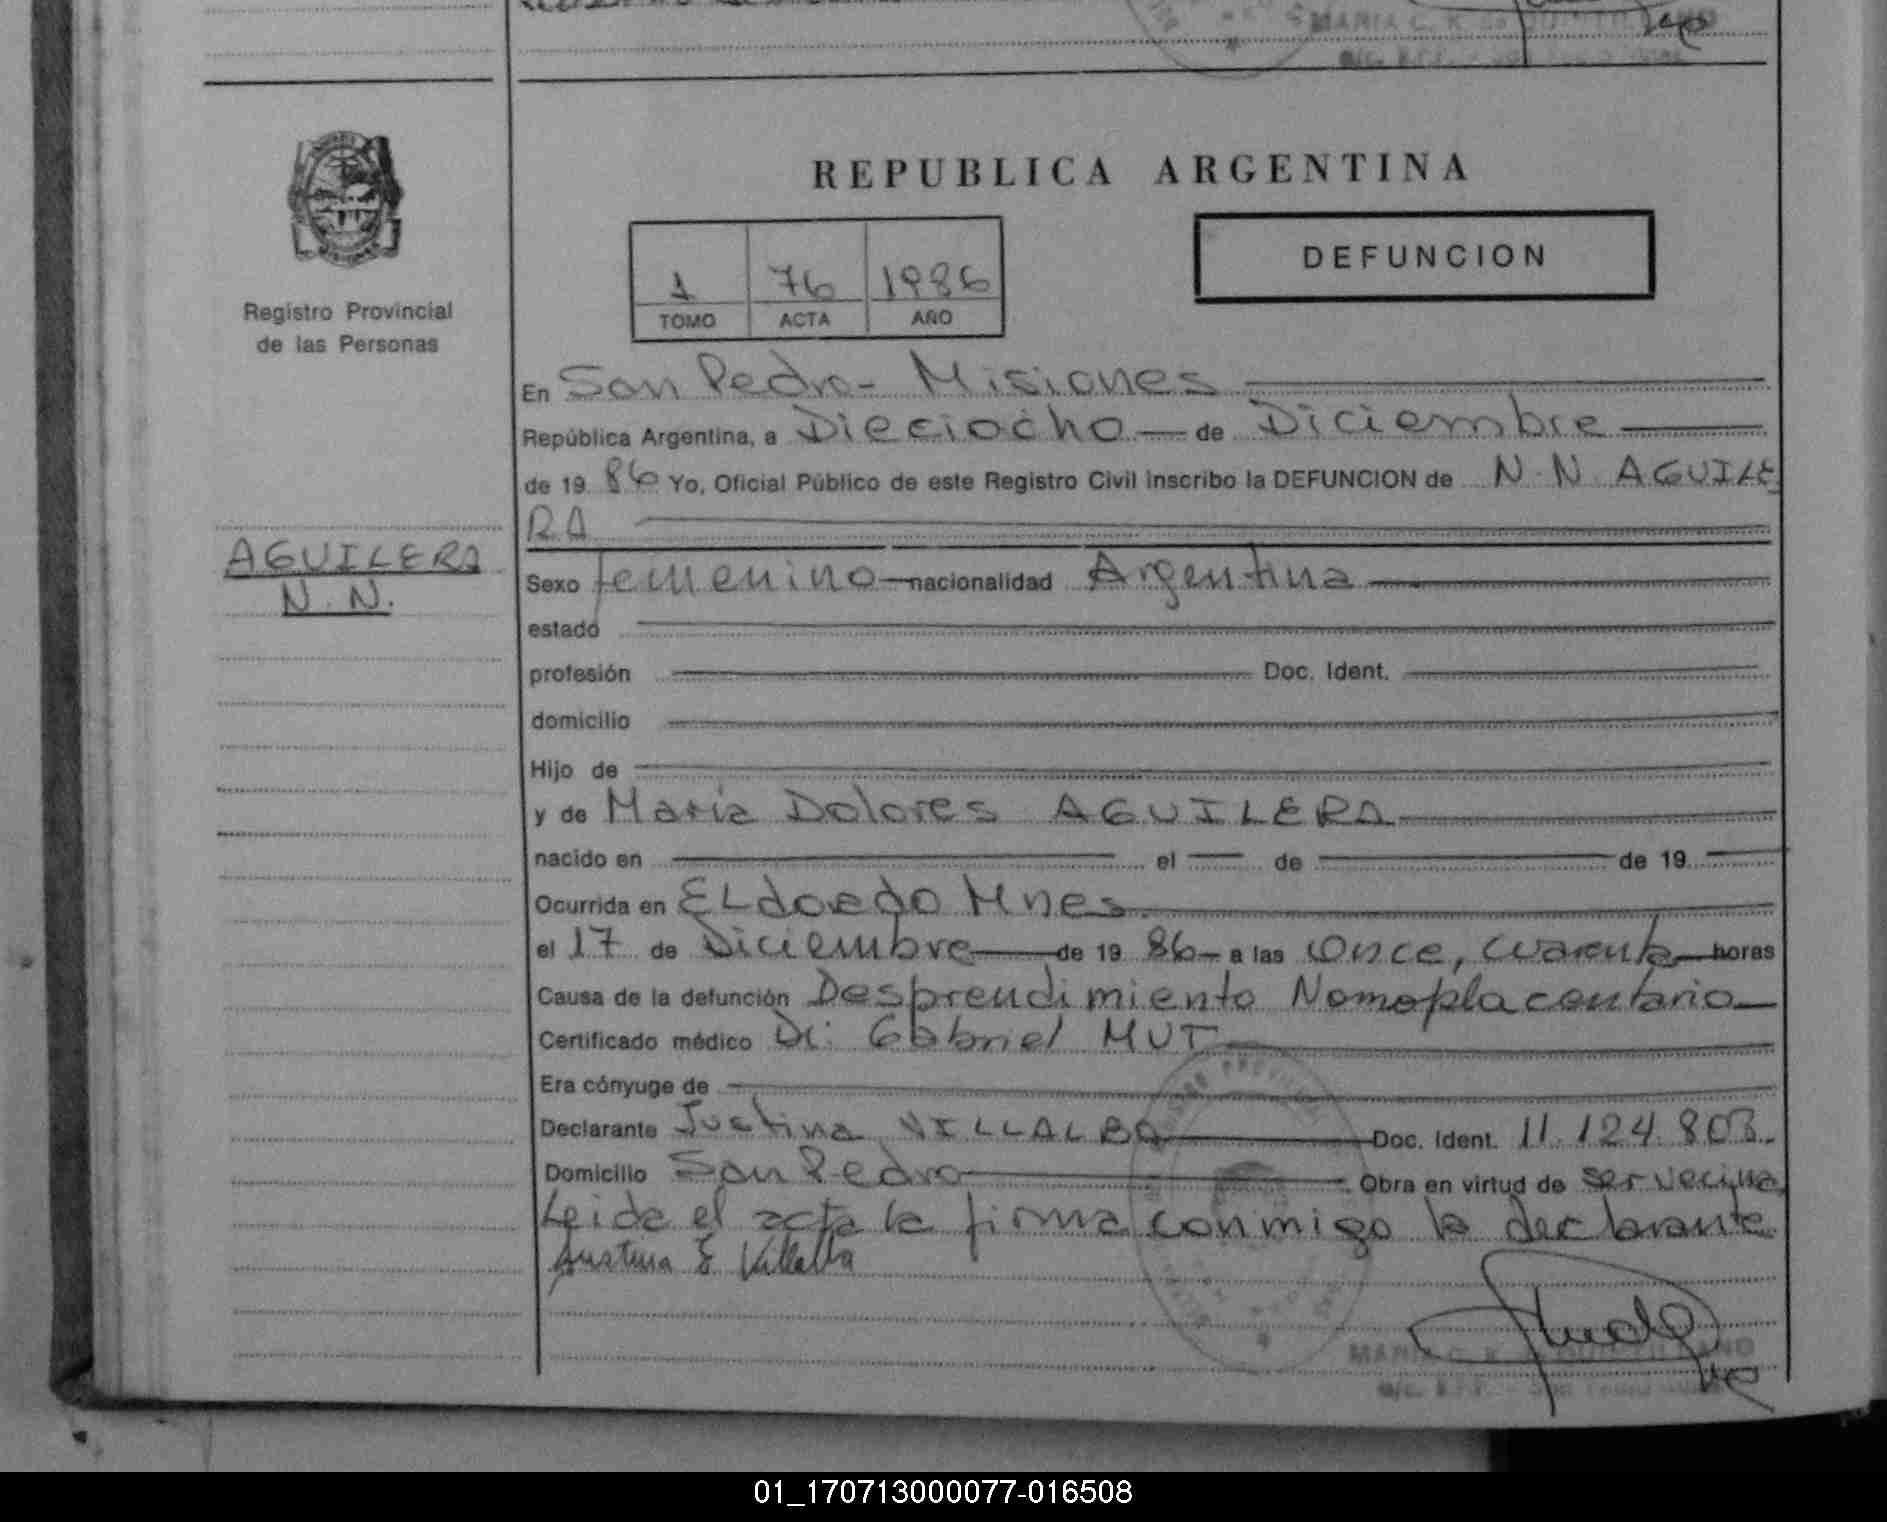 MARIA C. K. de QUINTILIANO
REPUBLICA ARGENTINA
DEFUNCION
1 76 1986
TOMO ACTA AÑO
Registro Provincial
de las Personas
En San Pedro - Misiones
República Argentina, a Dieciocho de Diciembre
de 19 86 Yo, Oficial Público de este Registro Civil inscribo la DEFUNCION de N. N. AGUILE
RA
AGUILERA
N. N.
Sexo femenino nacionalidad Argentina
estado
profesión Doc. Ident.
domicilio
Hijo de
y de María Dolores AGUILERA
nacido en el de de 19
Ocurrida en ELdoredo Mnes.
el 17 de Diciembre de 19 86 a las once, cuarenta horas
Causa de la defunción Desprendimiento Nomoplacentario
Certificado médico Dr: Gabriel MUT
Era cónyuge de
Declarante Justina VILLALBA Doc. Ident. 11.124.803.
Domicilio San Pedro Obra en virtud de ser vecina,
Leida el acta la firma conmigo la declarante
Justina E Villalba
MARIA C. K. de QUINTILIANO
01_170713000077-016508